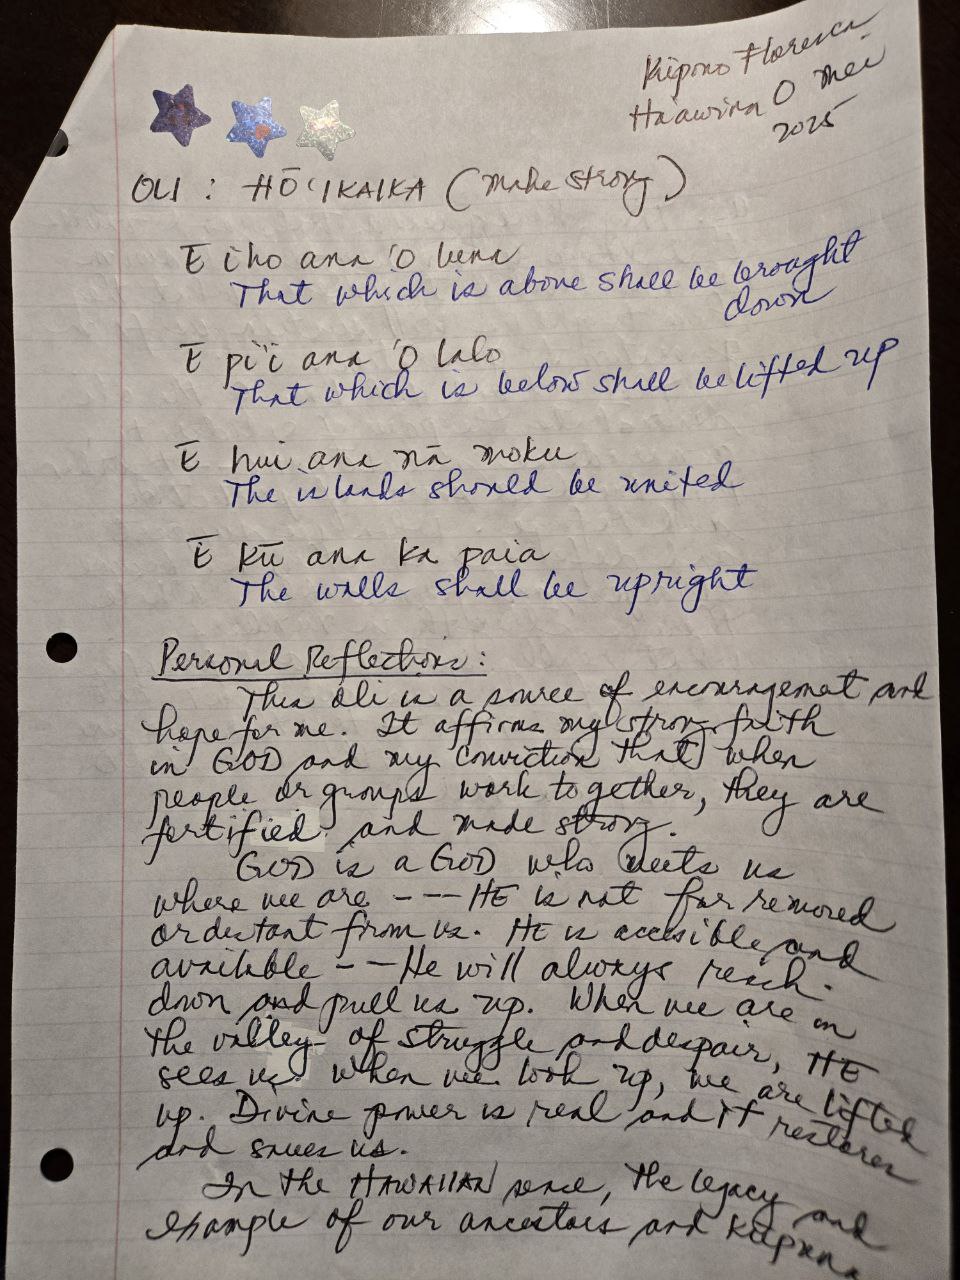 Kūpono Floresca
Ha'awina O Mei
2025
OLI : HŌ'IKAIKA (make strong)
E iho ana 'O luna
That which is above shall be brought
down
E pi'i ana 'O lalo
That which is below shall be lifted up
E hui ana nā moku
The islands should be united
E kū ana ka paia
The walls shall be upright
Personal Reflections:
This oli is a source of encouragement and
hope for me. It affirms my strong faith
in GOD and my conviction that when
people or groups work together, they are
fortified and made strong.
GOD is a GOD who meets us
where we are --- HE is not far removed
or distant from us. HE is accesible and
available -- He will always reach
down and pull us up. When we are in
the valley of struggle and despair, HE
sees us. When we look up, we are lifted
up. Divine power is real and it restores
and saves us.
In the HAWAIIAN sense, the legacy and
example of our ancestors and Kūpuna